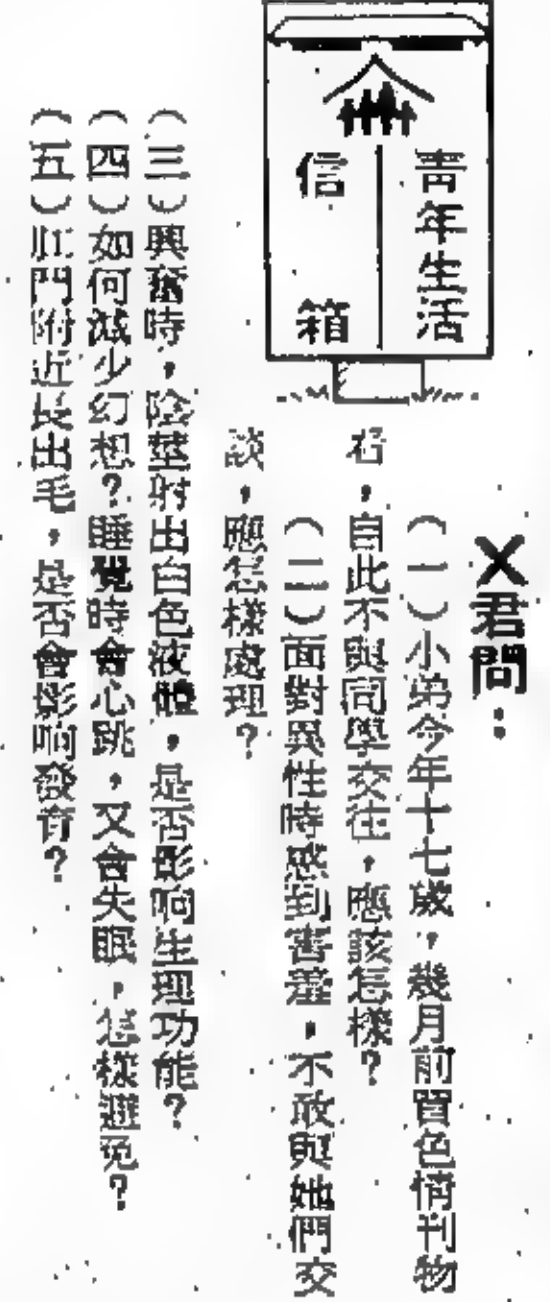 青年生活
信箱
X君問：
（一）小弟今年十七歲，幾月前買色情刊物
看，自此不與同學交往，應該怎樣？
（二）面對異性時感到害羞，不敢與她們交
談，應怎樣處理？
（三）興奮時，陰莖射出白色液體，是否影响生理功能？
（四）如何減少幻想？睡覺時會心跳，又會失眠，怎樣避免？
（五）肛門附近長出毛，是否會影响發育？